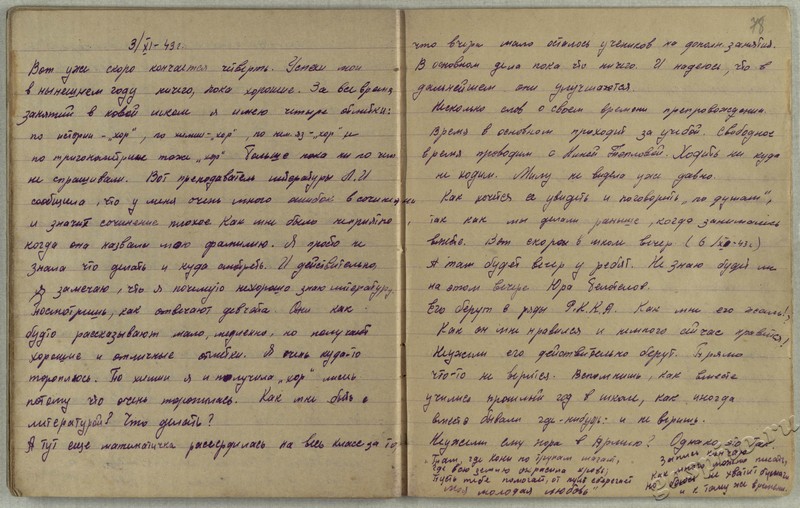 3/XI-43г.
Вот уже скоро кончается четверть. Успехи мои
в нынешнем году ничего, пока хорошие. За все время
занятий в новой школе я имею четыре отметки:
по истории - „хор", по химии - „хор", по нем.яз - „хор" и
по тригонометрии тоже „хор". Больше пока ни по чем
не спрашивали. Вот преподаватель литературы Л.И
сообщила, что у меня очень много ошибок в сочинении
и значит сочинение плохое. Как мне было неприятно,
когда она назвала мою фамилию. Я просто не
знала что делать и куда смотреть. И действительно,
я замечаю, что я почему-то нехорошо знаю литературу.
Посмотришь, как отвечают девчата. Они как
будто рассказывают мало, медленно, но получают
хорошие и отличные отметки. Я очень куда-то
тороплюсь. По химии я и получила „хор" лишь
потому что очень торопилась. Как мне быть с
литературой? Что делать?
А тут еще математичка рассердилась на весь класс за то,
78
что вчера мало осталось учеников на дополн. занятия.
В основном дела пока что ничего. И надеюсь, что в
дальнейшем они улучшатся.
Несколько слов о своем времени препровождении.
Время в основном проходит за учебой. Свободное
время проводим с Линей Топловой. Ходить ни куда
не ходим. Милу не видела уже давно.
Как хочется ее увидеть и поговорить „по душам",
так как мы делали раньше, когда занимались
вместе. Вот скоро в школе вечер (6.XI-43г.)
А там будет вечер у ребят. Не знаю будет ли
на этом вечере Юра
Его берут в ряды Р.К.К.А. Как мне его жаль!
Как он мне нравился и немного сейчас нравится!
Неужели его действительно берут. Прямо
что-то не верится. Вспомнишь, как вместе
учились прошлый год в школе, как иногда
вместе бывали где-нибудь и не веришь.
Неужели ему пора в Армию? Однако, это так.
„Там, где кони по трупам шагают,
Где всю землю окрасила кровь,
Пусть тебе помогает, от пуль сберегает
Моя молодая любовь"
Запись кончаю
Как много можно писать,
но боюсь не хватит бумаги
и к тому же времени.